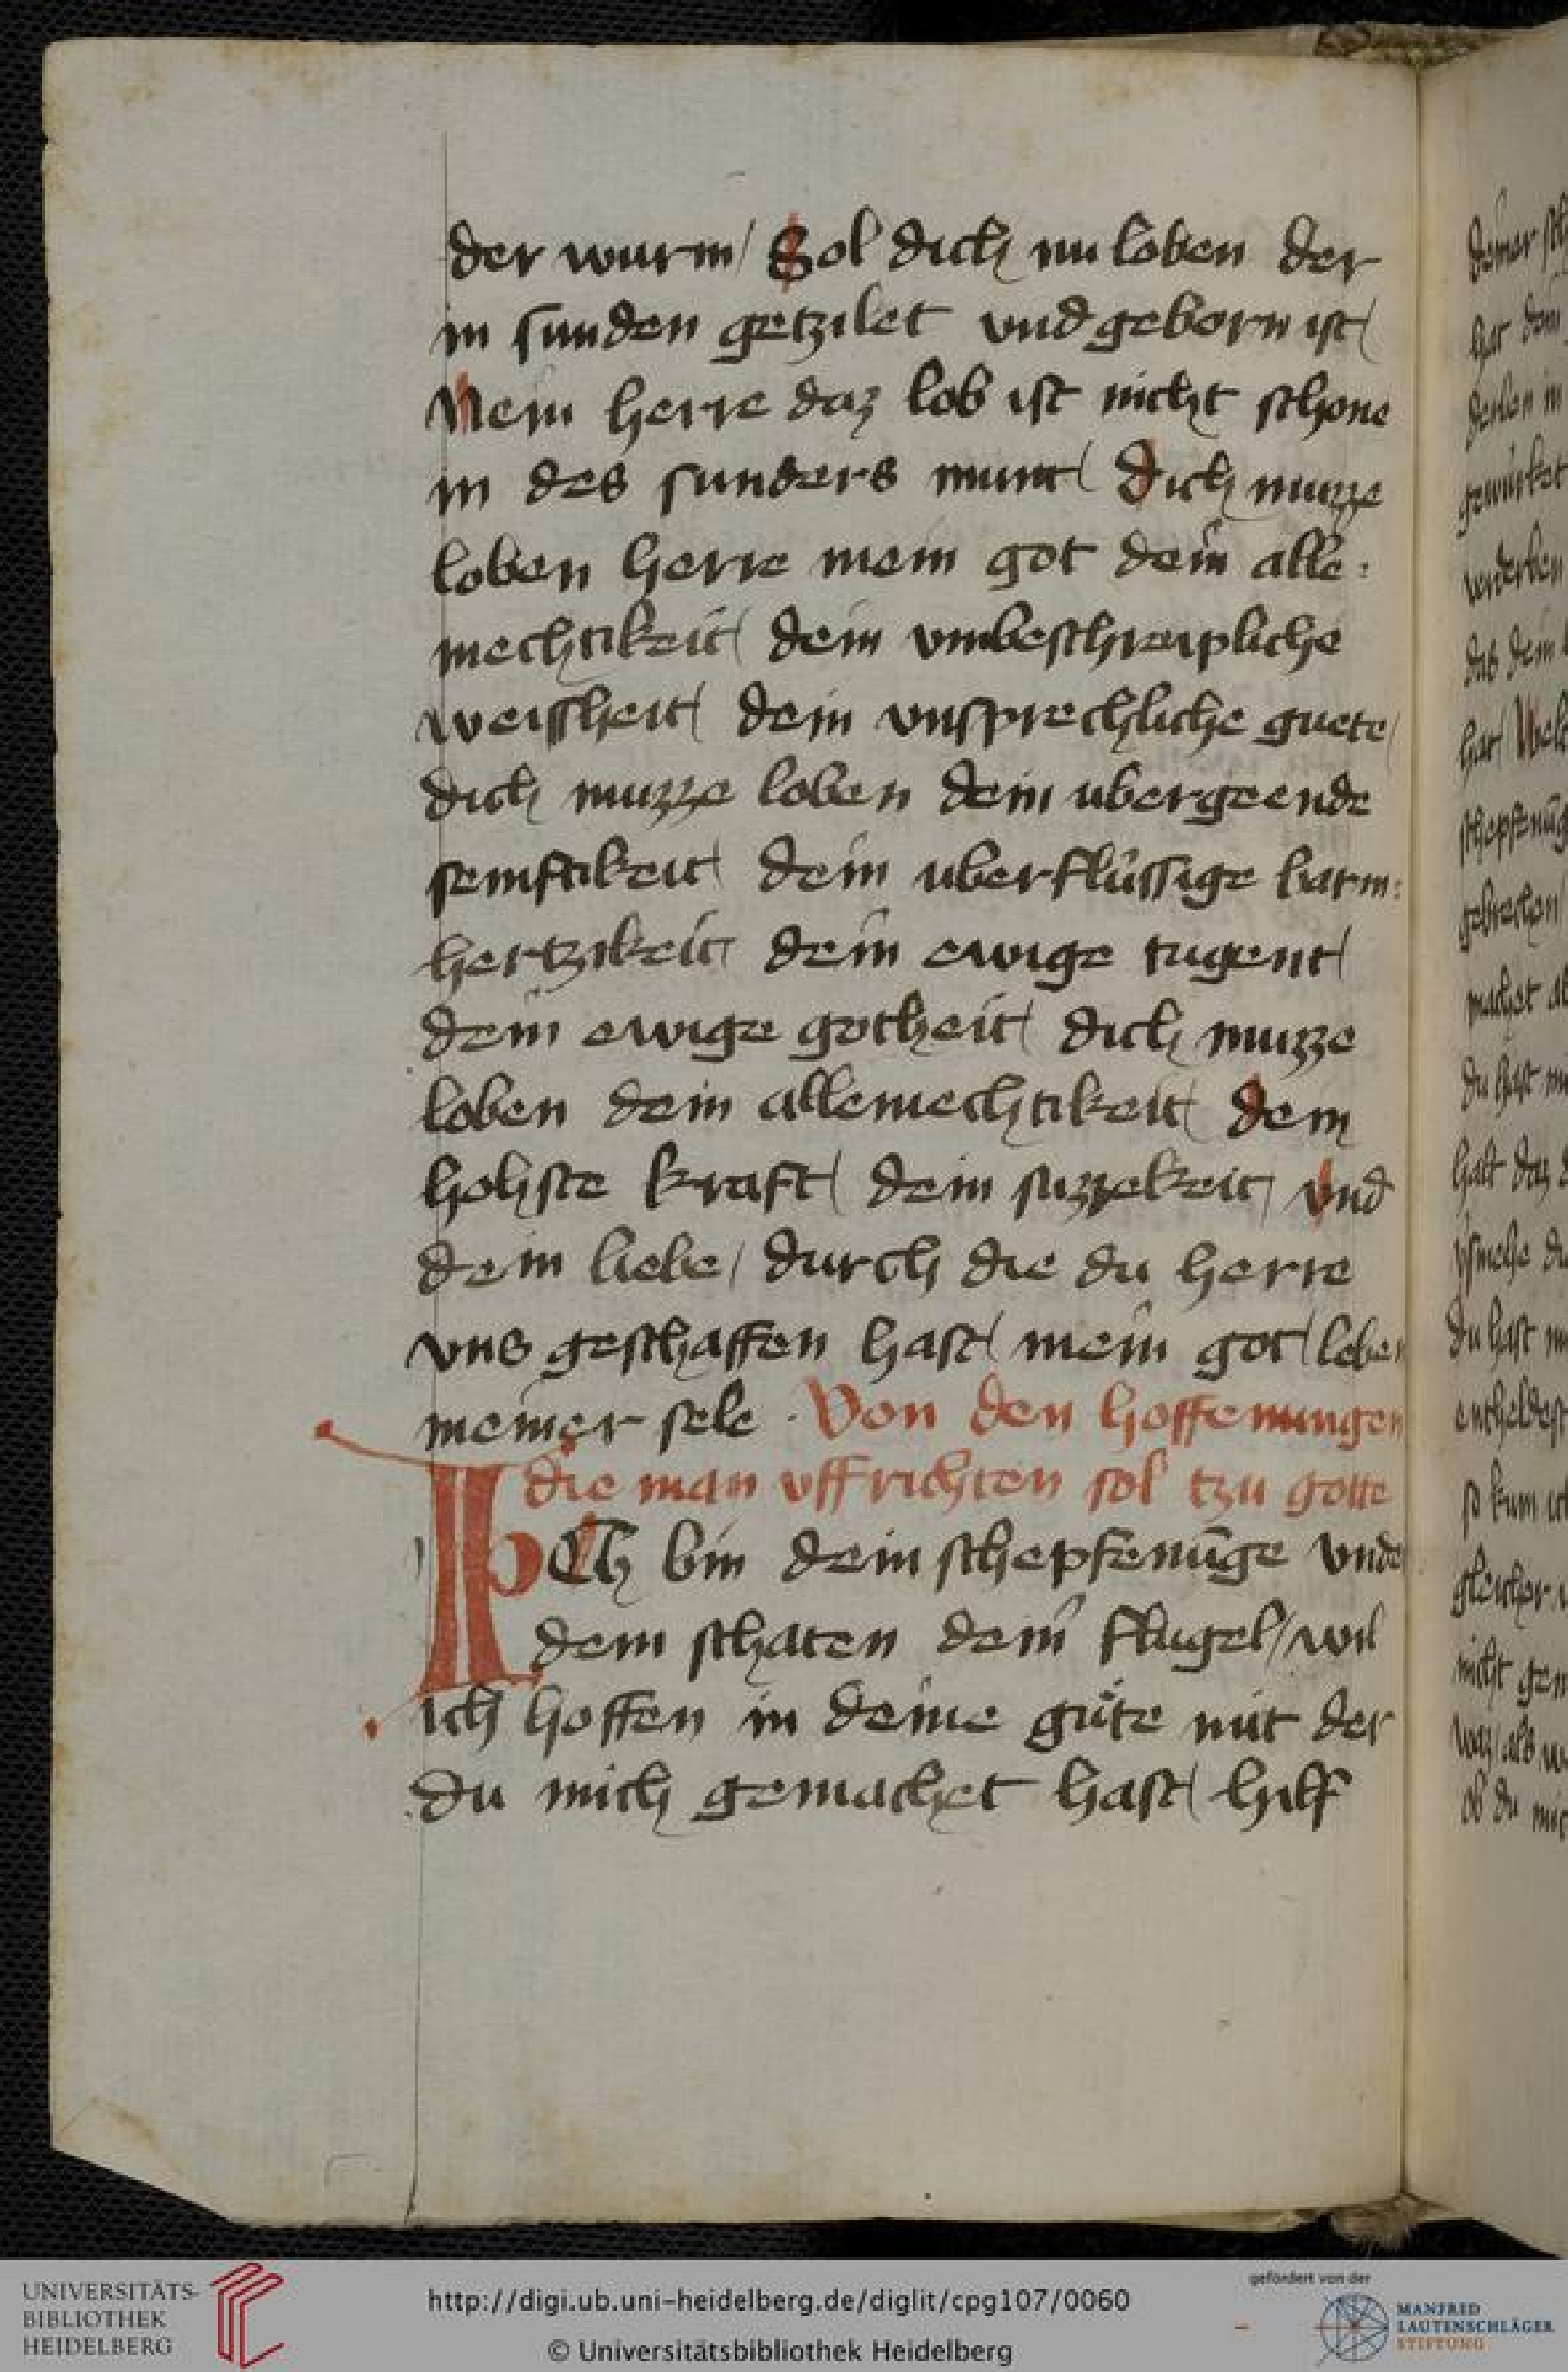 der wurm/ Sol dich nu loben der
in sunden getzilet vnd geborn ist/
Nein herre daz lob ist nicht schone
in des sunders munt/ dich muzze
loben herre mein got dein alle:
mechtikeit/ dein vmbeschreipliche
weissheit/ dein vnsprechliche guete/
dich muzze loben dein ubergeende
semftikeit/ dein uberflüssige barm:
hertzikeit dein ewige tugent/
dein ewige gotheit/ dich muzze
loben dein allemechtikeit/ dein
hohste kraft/ dein suzzekeit/ vnd
dein liebe/ durch die du herre
vns geschaffen hast/ mein got/ leben
meiner sele . Von den hoffenungen
die man vffrichten sol tzu gotte
ICh bin dein schepfenūge vnde
dem schaten dein flugel/ wil
ich hoffen in deine güte mit der
du mich gemachet hast/ hilf
UNIVERSITÄTS-
BIBLIOTHEK
HEIDELBERG
http://digi.ub.uni-heidelberg.de/diglit/cpg107/0060
© Universitätsbibliothek Heidelberg
gefördert von der
MANFRED
LAUTENSCHLÄGER
STIFTUNG